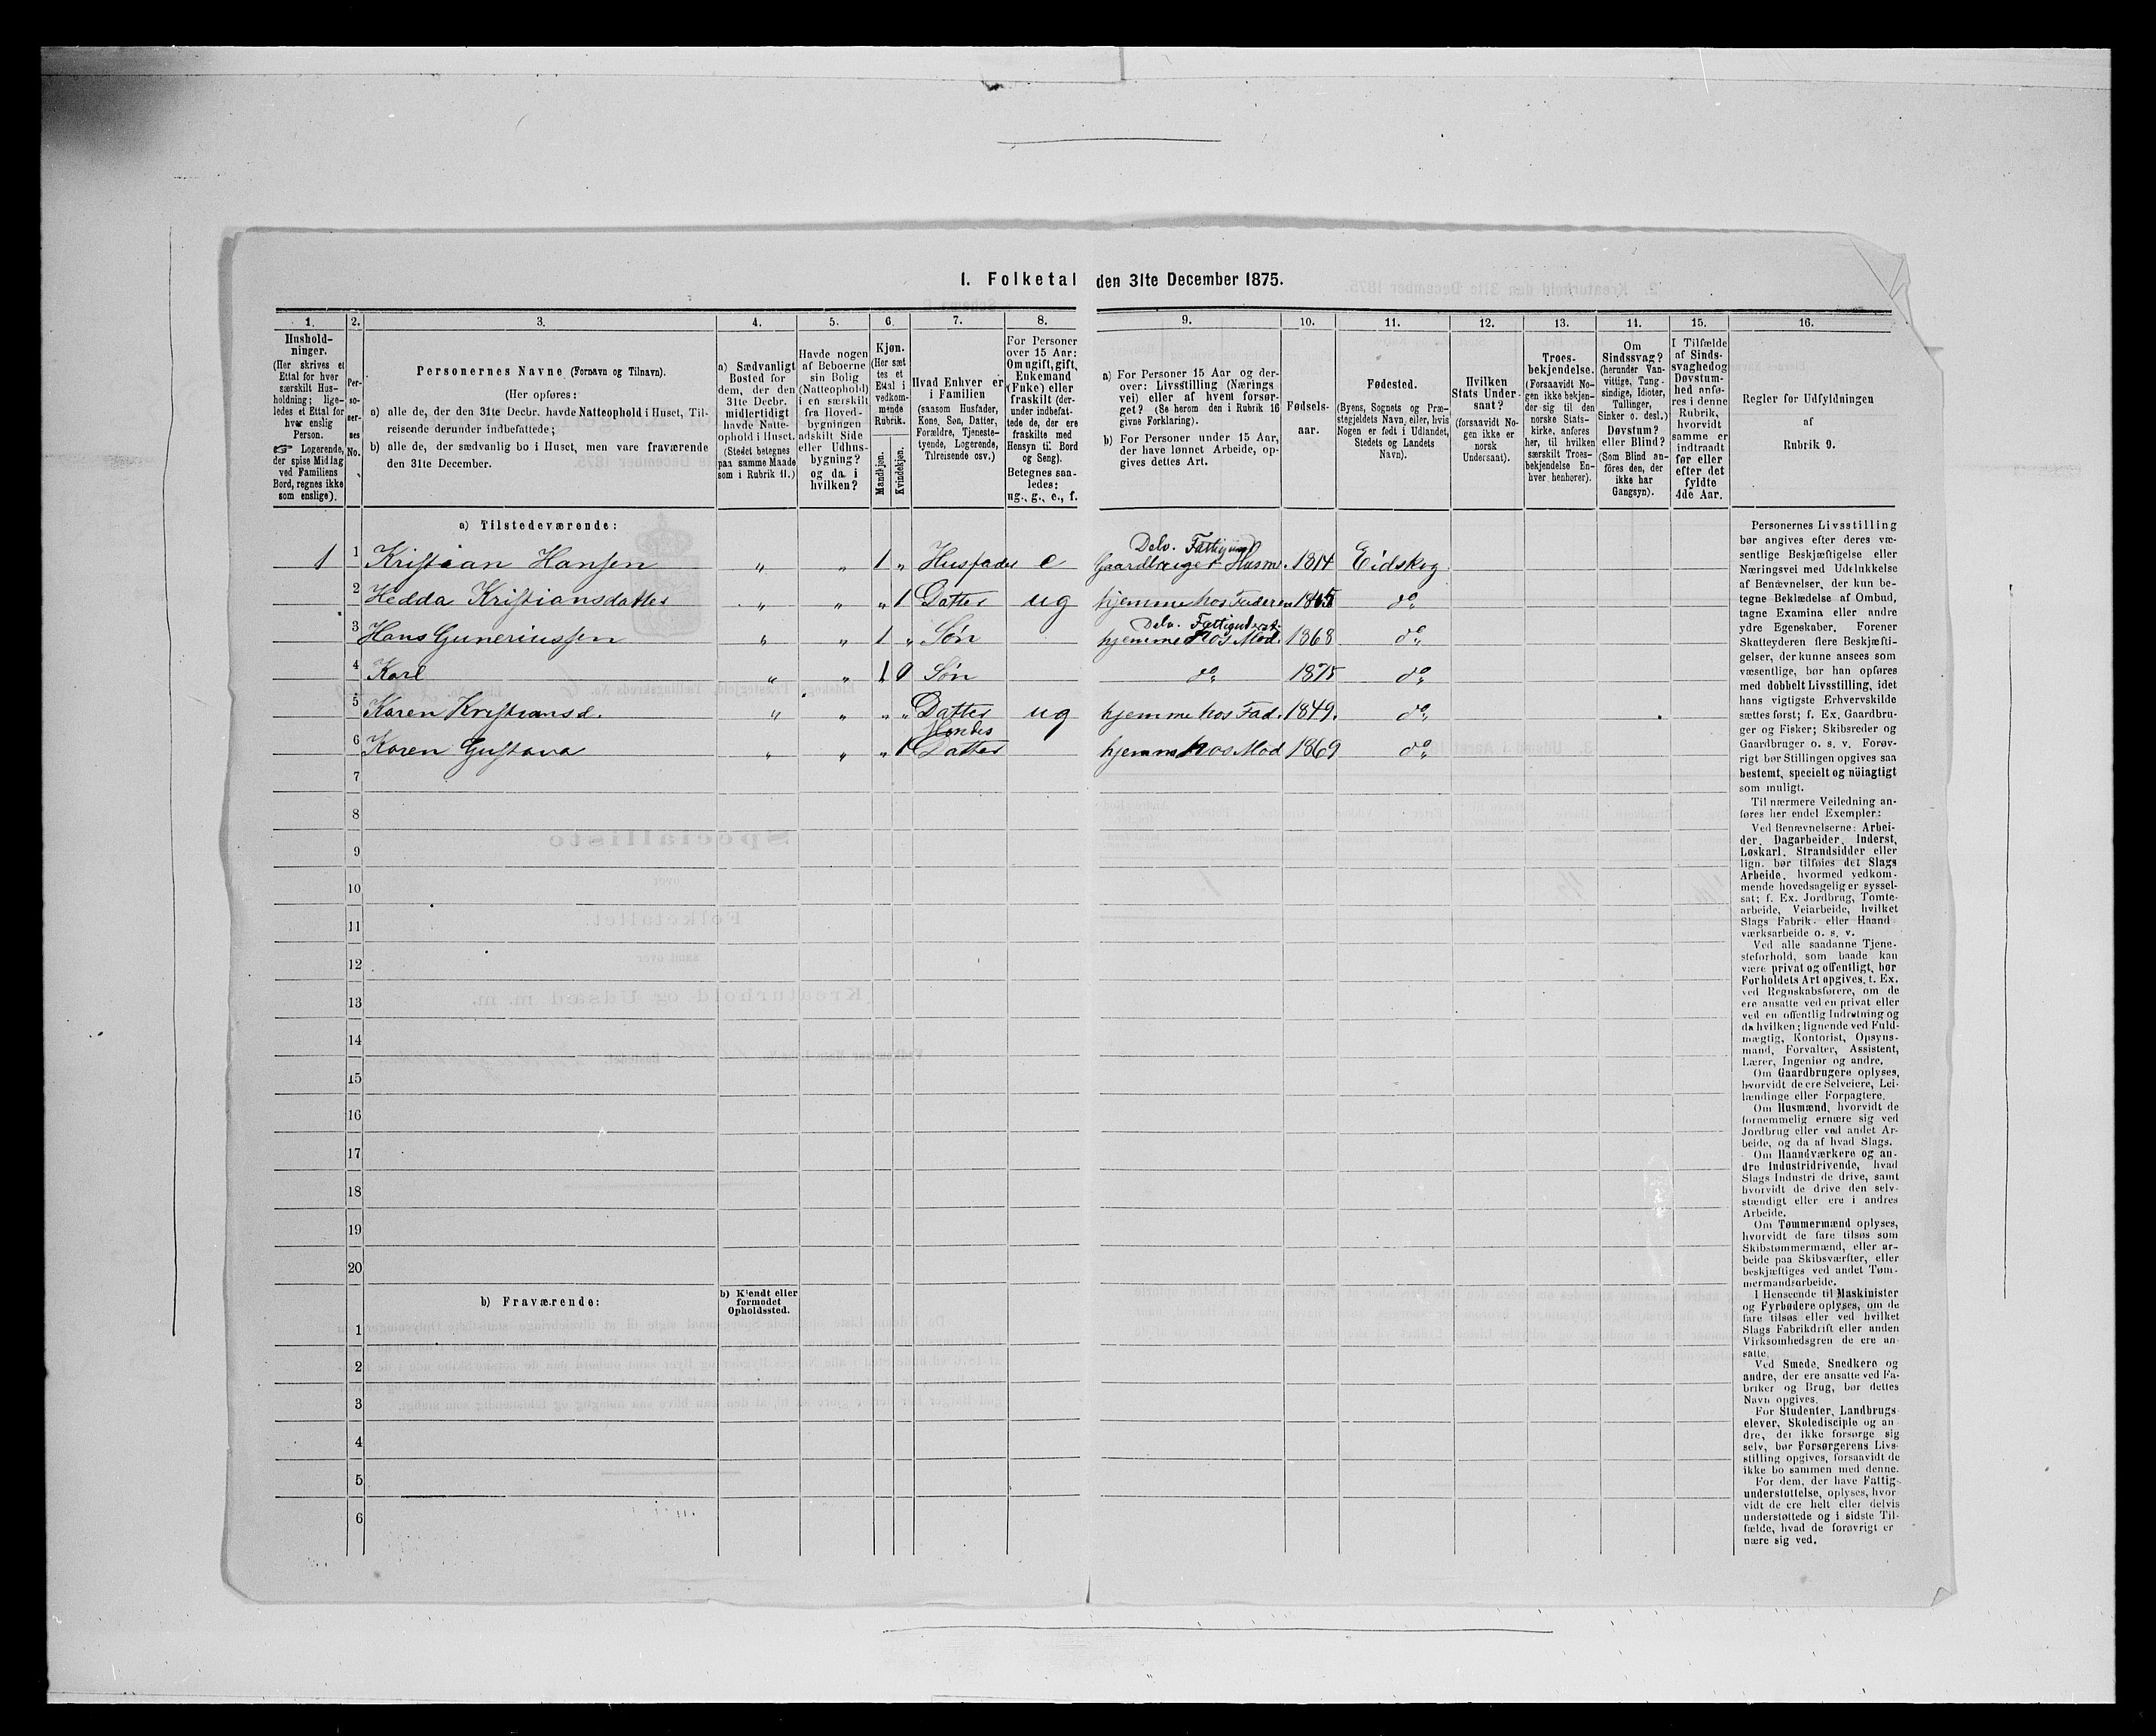 1. Folketal den 31te December 1875.
1. 2. 3. 4. 5. 6. 7. 8. 9. 10. 11. 12. 13. 14. 15. 16.
Hushold-
ninger.
(Her skrives et
Ettal for hver
særskilt Hus-
holdning; lige-
ledes et Ettal for
hver enslig
Person.
☞ Logerende,
der spise Middag
ved Familiens
Bord, regnes ikke
som enslige).
Per-
so-
ner-
nes
No.
Personernes Navne (Fornavn og Tilnavn).
(Her opføres:
a) alle de, der den 31te Decbr. havde Natteophold i Huset, Til-
reisende derunder indbefattede;
b) alle de, der sædvanlig bo i Huset, men vare fraværende
den 31te December.
a) Sædvanligt
Bosted for
dem, der den
31te Decbr.
midlertidigt
havde Natte-
ophold i Huset.
(Stedet betegnes
paa samme Maade
som i Rubrik 11.)
Havde nogen
af Beboerne
sin Bolig
(Natteophold)
i en særskilt
fra Hoved-
bygningen
adskilt Side
eller Udhus-
bygning?
og da i
hvilken?
Kjøn.
(Her sæt
tes et
Ettal i
vedkom-
mende
Rubrik.
Mandkjøn.
Kvindekjøn.
Hvad Enhver er
i Familien
(saasom Husfader,
Kone, Søn, Datter,
Forældre, Tjeneste-
tyende, Logerende,
Tilreisende osv.)
For Personer
over 15 Aar:
Om ugift, gift,
Enkemand
(Enke) eller
fraskilt (der-
under indbefat-
tede de, der ere
fraskilte med
Hensyn til Bord
og Seng).
Betegnes saa-
ledes:
ug., g., e., f.
a) For Personer 15 Aar og der-
over: Livsstilling (Nærings
vei) eller af hvem forsør-
get? (Se herom den i Rubrik 16
givne Forklaring).
b) For Personer under 15 Aar,
der have lønnet Arbeide, op-
gives dettes Art.
Fødsels-
aar.
Fødested.
(Byens, Sognets og Præ-
stegjeldets Navn, eller, hvis
Nogen er født i Udlandet,
Stedets og Landets
Navn).
Hvilken
Stats Under-
saat?
(forsaavidt No-
gen ikke er
norsk
Undersaat).
Troes-
bekjendelse.
(Forsaavidt No-
gen ikke bekjen-
der sig til den
norske Stats-
kirke, anføres
her, til hvilken
særskilt Troes-
bekjendelse En-
hver henhører).
Om
Sindssvag?
(herunder Van-
vittige, Tung-
sindige, Idioter,
Tullinger,
Sinker o. desl.)
Døvstum?
eller Blind?
(Som Blind an-
føres den, der
ikke har
Gangsyn).
I Tilfælde
af Sinds-
svaghed og
Døvstum-
hed anfø-
res i denne
Rubrik,
hvorvidt
samme er
indtraadt
før eller
efter det
fyldte
4de Aar.
Regler for Udfyldningen
af
Rubrik 9.
a) Tilstedeværende:
Delv. Fattigund
1 1 Kristian Hansen " " 1 " Husfader e Gaardbruger Husm. 1814 Eidskog
2 Hedda Kristiansdatter " " " 1 Datter ug hjemme hos Faderen 1845 do"
Delv. Fattigunderst.
3 Hans Guneriussen " " 1 " Søn hjemme hos Mod. 1868 do"
4 Karl " " 1 0 Søn do" 1875 do"
5 Karen Kristiansd. " " " " Datter ug hjemme hos Fad. 1849. do"
Hendes
6 Karen Gustava " " " 1 Datter hjemme hos Mod 1869 do"
7
8
9
10
11
12
13
14
15
16
17
18
19
20
b) Fraværende:
b) Kjendt eller
formodet
Opholdssted.
1
2
3
4
5
6
Personernes Livsstilling
bør angives efter deres væ-
sentlige Beskjæftigelse eller
Næringsvei med Udelukkelse
af Benævnelser, der kun be-
tegne Beklædelse af Ombud,
tagne Examina eller andre
ydre Egenskaber. Forener
Skatteyderen flere Beskjæfti-
gelser, der kunne ansees som
væsentlige, bør han opføres
med dobbelt Livsstilling, idet
hans vigtigste Erhvervskilde
sættes først; f. Ex. Gaardbru-
ger og Fisker; Skibsreder og
Gaardbruger o. s. v. Forøv-
rigt bør Stillingen opgives saa
bestemt, specielt og nöiagtigt
som muligt.
Til nærmere Veiledning an-
føres her endel Exempler:
Ved Benævnelserne: Arbei-
der, Dagarbeider, Inderst,
Løskarl, Strandsidder eller
lign. bør tilføies det Slags
Arbeide, hvormed vedkom-
mende hovedsagelig er syssel-
sat; f. Ex. Jordbrug, Tomte-
arbeide, Veiarbeide, hvilket
Slags Fabrik- eller Haand
værksarbeide o. s. v.
Ved alle saadanne Tjene-
steforhold, som baade kan
være privat og offentligt, bør
Forholdets Art opgives, t. Ex.
ved Regnskabsførere, om de
ere ansatte ved en privat eller
ved en offentlig Indretning og
da hvilken; lignende ved Fuld-
mægtig, Kontorist, Opsyns-
mand, Forvalter, Assistent,
Lærer, Ingeniør og andre.
Om Gaardbrugere oplyses,
hvorvidt de ere Selveiere, Lei-
lændinge eller Forpagtere.
Om Husmænd, hvorvidt de
fornemmelig ernære sig ved
Jordbrug eller ved andet Ar-
beide, og da af hvad Slags.
Om Haandværkere og an-
dre Industridrivende, hvad
Slags Industri de drive, samt
hvorvidt de drive den selv-
stændigt eller ere i andres
Arbeide.
Om Tømmermænd oplyses,
hvorvidt de fare tilsøs som
Skibstømmermænd, eller ar-
beide paa Skibsværfter, eller
beskjæftiges ved andet Tøm-
mermandsarbeide.
I Henseende til Maskinister
og Fyrbødere oplyses, om de
fare tilsøs eller ved hvilket
Slags Fabrikdrift eller anden
Virksomhedsgren de ere an-
satte.
Ved Smede, Snedkere og
andre, der ere ansatte ved Fa-
briker og Brug, bør dettes
Navn opgives.
For Studenter, Landbrugs-
elever, Skoledisciple og an
dre, der ikke forsørge sig
selv, bør Forsørgerens Livs-
stilling opgives, forsaavidt de
ikke bo sammen med denne.
For dem, der have Fattig-
understøttelse, oplyses, hvor
vidt de ere helt eller delvis
understøttede og i sidste Til-
fælde, hvad de forøvrigt er
nære sig ved.